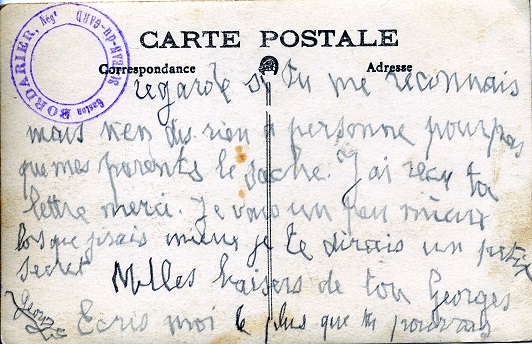 Gaston BORDARIER, Nég!
CARTE POSTALE
Correspondance Adresse
regarde si tu me reconnais
mais n'en dis rien a personne pour pas
que mes parents le sache. J'ai reçu ta
lettre merci. Je vais un peu mieux
lorsque je te dirais un petit
secret Milles baisers de ton Georges
Ecris moi le plus que tu pourras